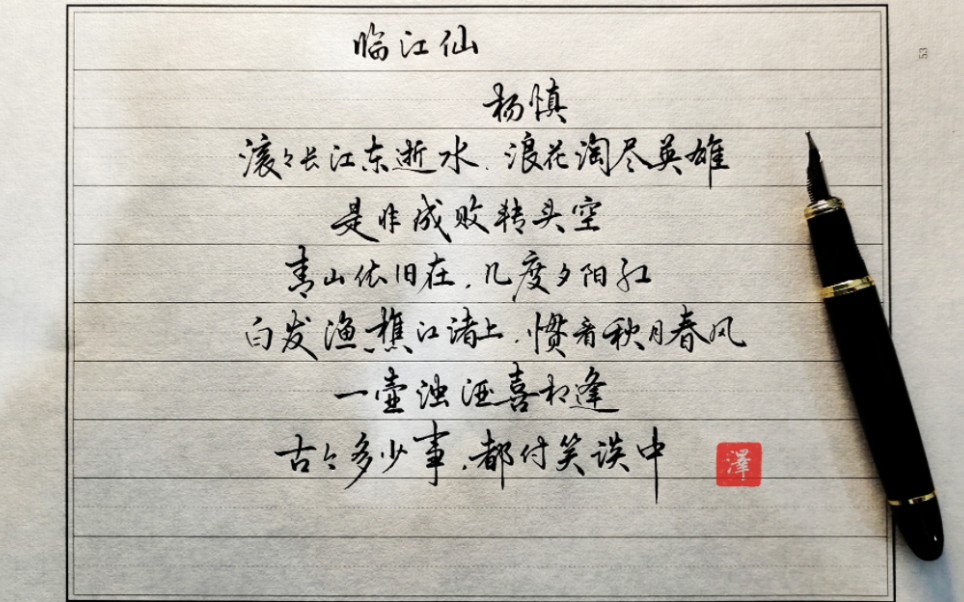 临江仙
杨慎
滚々长江东逝水，浪花淘尽英雄
是非成败转头空
青山依旧在，几度夕阳红
白发渔樵江渚上，惯看秋月春风
一壶浊酒喜相逢
古今多少事，都付笑谈中
澤
53